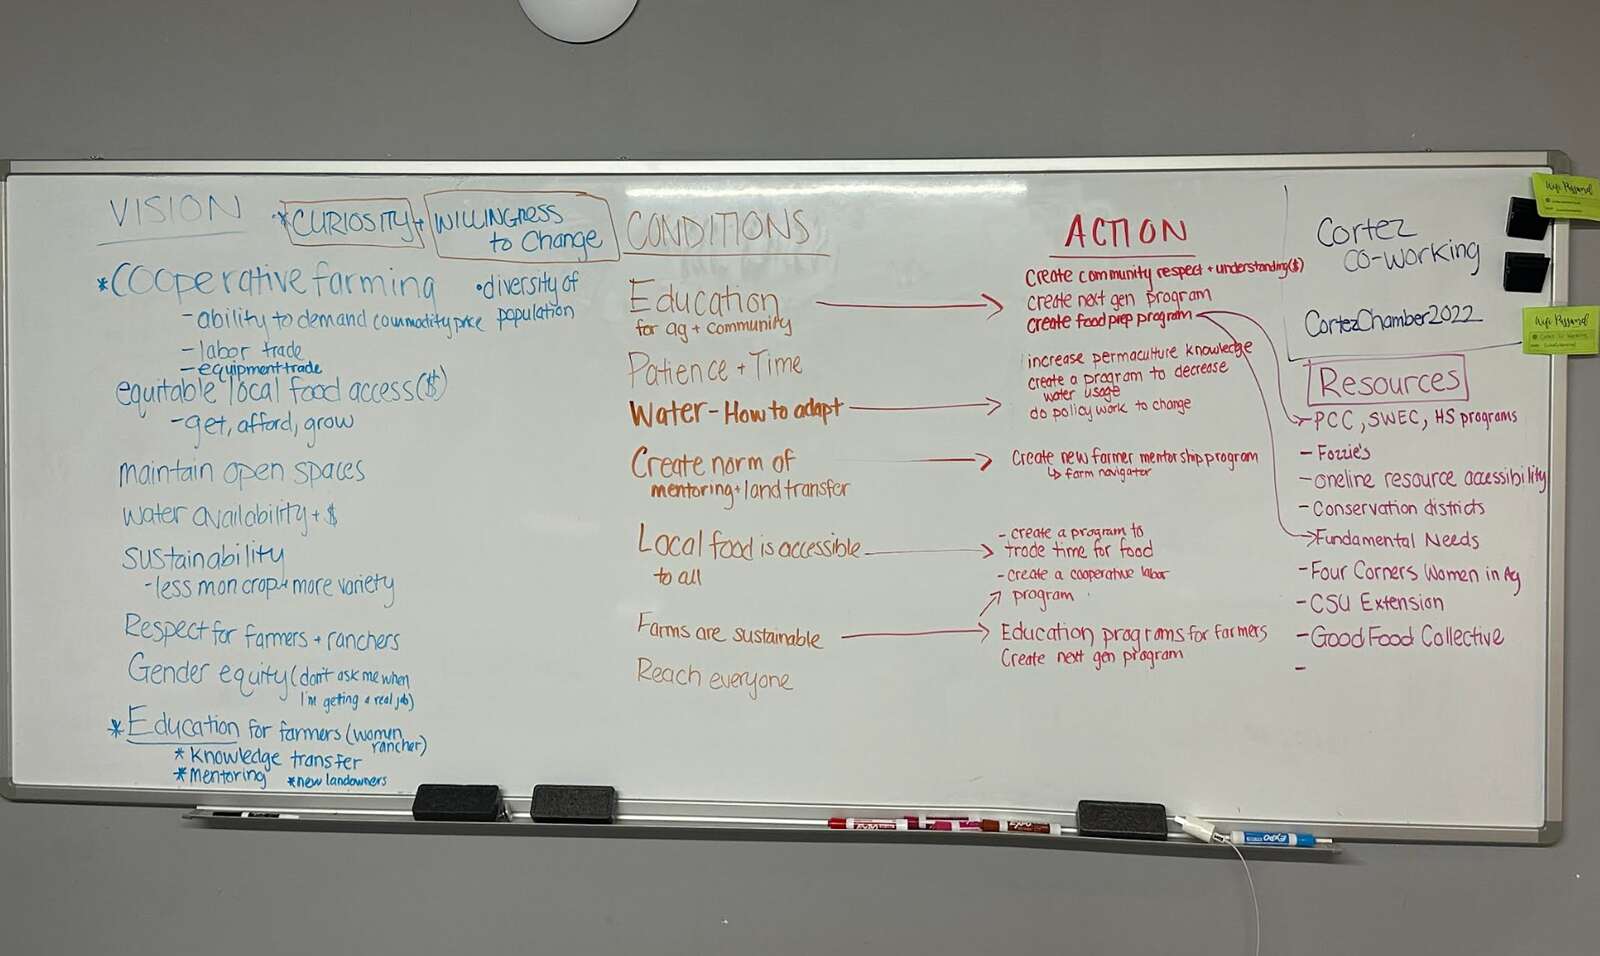 VISION
*CURIOSITY + WILLINGNESS
to Change
*Cooperative farming
- ability to demand commodity price
- labor trade
- equipment trade
• diversity of
population
equitable local food access ($)
- get, afford, grow
maintain open spaces
water availability + $
sustainability
- less mon crop + more variety
Respect for farmers + ranchers
Gender equity (don't ask me when
I'm getting a real job)
* Education for farmers (women
rancher)
* Knowledge transfer
* Mentoring * new landowners
CONDITIONS
Education
for ag + community
Patience + Time
Water - How to adapt
Create norm of
mentoring + land transfer
Local food is accessible
to all
Farms are sustainable
Reach everyone
ACTION
Create community respect + understanding ($)
create next gen program
create food prep program
increase permaculture knowledge
create a program to decrease
water usage
do policy work to change
Create new farmer mentorship program
↳ farm navigator
- create a program to
trade time for food
- create a cooperative labor
program
Education programs for farmers
Create next gen program
Cortez
co-working
CortezChamber2022
Resources
- PCC, SWEC, HS programs
- Fozzie's
- oneline resource accessibility
- Conservation districts
Fundamental Needs
- Four Corners Women in Ag
- CSU Extension
- Good Food Collective
-
Wifi Password
Wifi Password
EXPO
EXPO